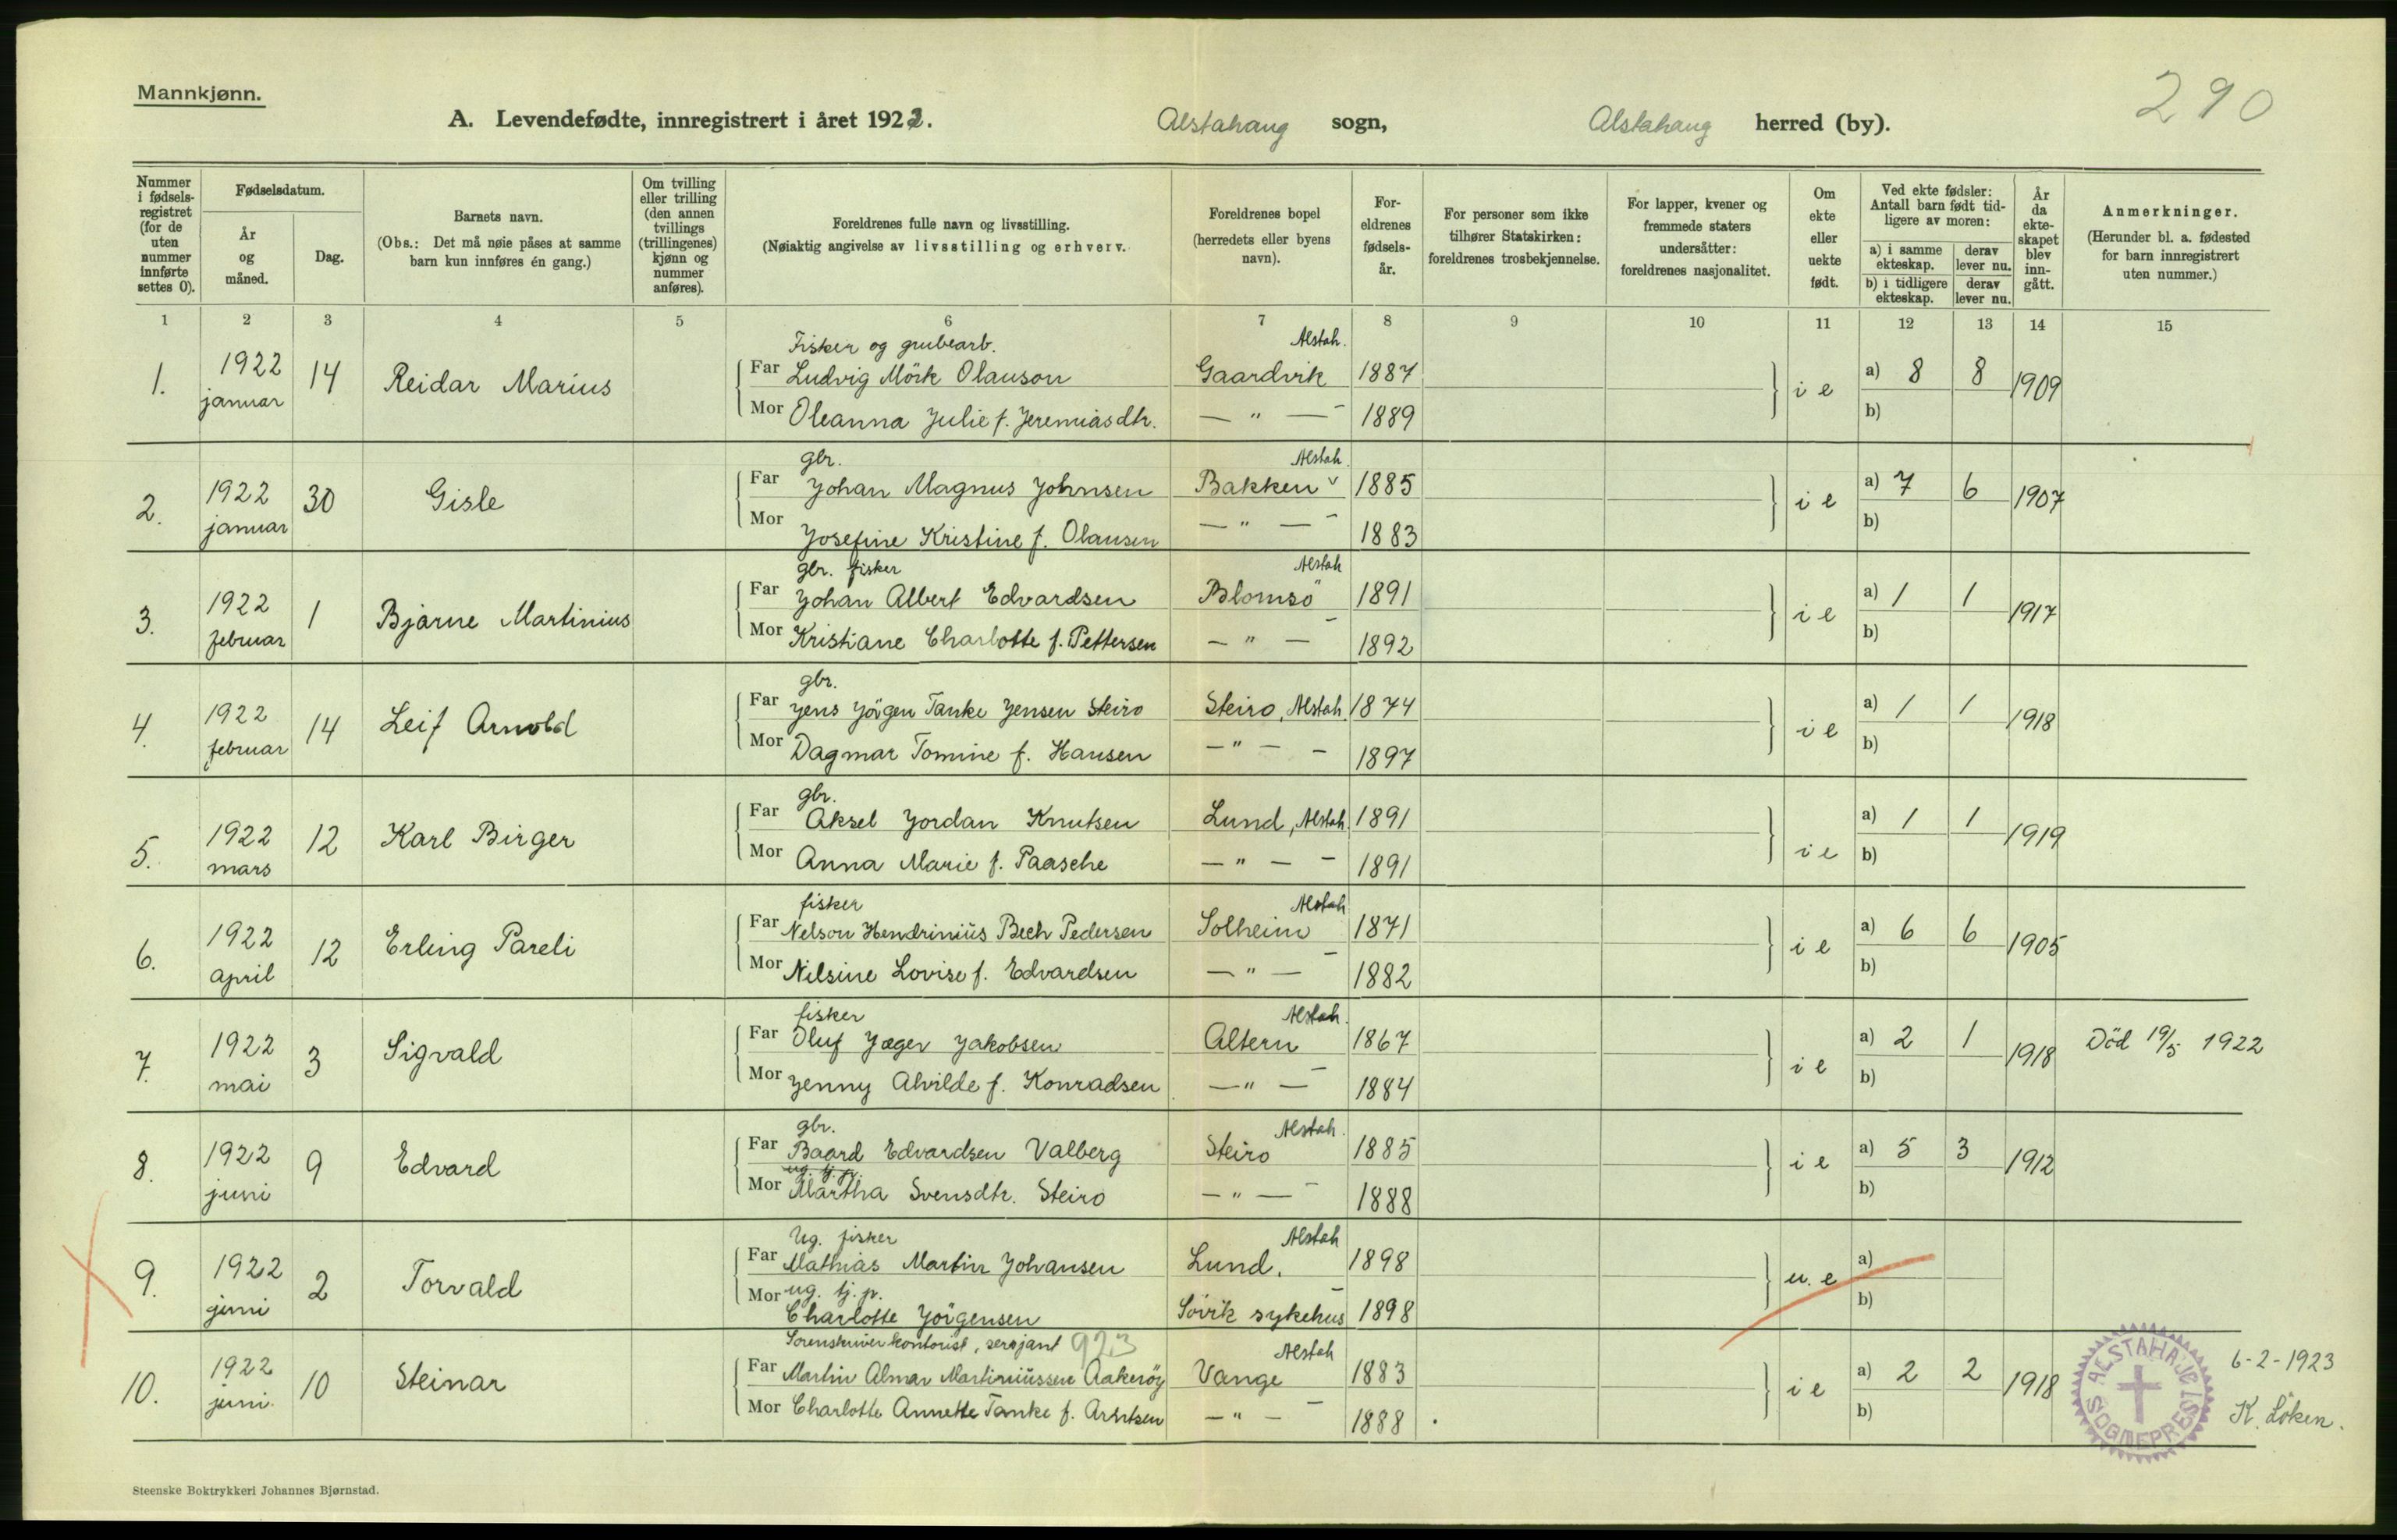 Mannkjønn.
290
A. Levendefødte, innregistrert i året 1922. Alstahaug sogn, Alstahaug herred (by).
Nummer i fødselsregistret (for de uten nummer innførte settes 0).
Fødselsdatum.
År og måned.
Dag.
Barnets navn.
(Obs.: Det må nøie påses at samme barn kun innføres én gang.)
Om tvilling eller trilling (den annen tvillings (trillingenes) kjønn og nummer anføres).
Foreldrenes fulle navn og livsstilling.
(Nøiaktig angivelse av livsstilling og erhverv.
Foreldrenes bopel (herredets eller byens navn).
Foreldrenes fødselsår.
For personer som ikke tilhører Statskirken: foreldrenes trosbekjennelse.
For lapper, kvener og fremmede staters undersåtter: foreldrenes nasjonalitet.
Om ekte eller uekte født.
Ved ekte fødsler: Antall barn født tidligere av moren:
a) i samme ekteskap. derav lever nu.
b) i tidligere ekteskap. derav lever nu.
År da ekteskapet blev inngått.
Anmerkninger.
(Herunder bl. a. fødested for barn innregistrert uten nummer.)
1 2 3 4 5 6 7 8 9 10 11 12 13 14 15
Fisker og grubearb. Alstah.
1. 1922 januar 14 Reidar Marius Far Ludvig Mörk Olauson Gaardvik 1887 i e a) 8 8 1909
Mor Oleanna Julie f. Jeremiasdtr. — " — 1889 b)
gbr. Alstah.
2. 1922 januar 30 Gisle Far Johan Magnus Johnsen Bakken 1885 i e a) 7 6 1907
Mor Josefine Kristine f. Olausen — " — 1883 b)
gbr. fisker Alstah
3. 1922 februar 1 Bjarne Martinius Far Johan Albert Edvardsen Blomsö 1891 i e a) 1 1 1917
Mor Kristiane Charlotte f. Pettersen — " — 1892 b)
gbr.
4. 1922 februar 14 Leif Arnold Far Jens Jörgen Tanke Jensen Steiro Steiro, Alstah. 1874 i e a) 1 1 1918
Mor Dagmar Tomine f. Hansen — " — 1897 b)
gbr.
5. 1922 mars 12 Karl Birger Far Aksel Jordan Knutsen Lund, Alstah. 1891 i e a) 1 1 1919
Mor Anna Marie f. Paasche — " — 1891 b)
fisker Alstah
6. 1922 april 12 Erling Pareli Far Nelson Hendriniüs Bech Pedersen Solheim 1871 i e a) 6 6 1905
Mor Nilsine Lovise f. Edvardsen — " — 1882 b)
fisker Alstah.
7. 1922 mai 3 Sigvald Far Oluf Jæger Jakobsen Altern 1867 i e a) 2 1 1918 Död 19/5 1922
Mor Jenny Alvilde f. Konradsen — " — 1884 b)
gbr. Alstah.
8. 1922 juni 9 Edvard Far Baard Edvardsen Valberg Steiro 1885 i e a) 5 3 1912
ug. tj. p.
Mor Martha Svensdtr. Steiro — " — 1888 b)
Ug. fisker Alstah
9. 1922 juni 2 Torvald Far Mathias Martin Johansen Lund. 1898 u. e a)
ug. tj. p.
Mor Charlotte Jörgensen Sövik sykehus 1898 b)
Sorenskriverkontorist, sersjant 923 Alstah
10. 1922 juni. 10 Steinar Far Martin Almar Martiniüssen Aakeröy Vange 1883 i e a) 2 2 1918
Mor Charlotte Annette Tanke f. Arntsen — " — 1888 b)
ALSTAHAUG SOGNEPREST
6-2-1923
K. Löken.
Steenske Boktrykkeri Johannes Bjørnstad.